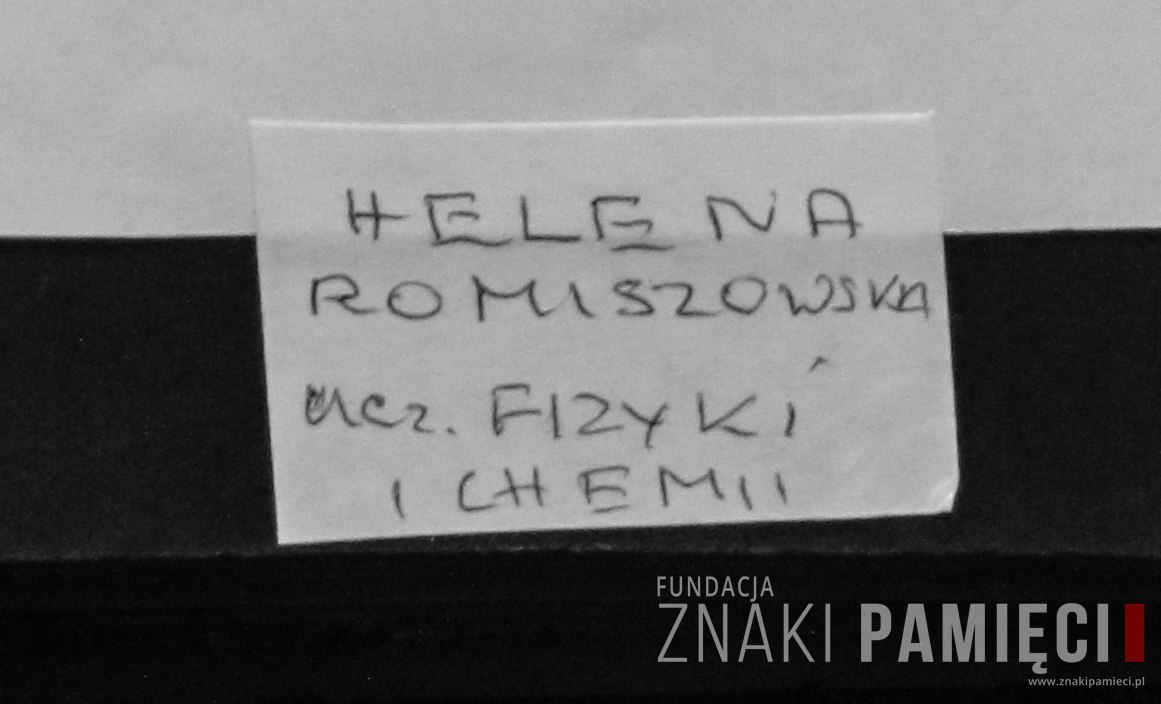 HELENA
ROMISZOWSKA
ucz. FIZYKI
I CHEMII
FUNDACJA
ZNAKI PAMIĘCI
www.znakipamieci.pl